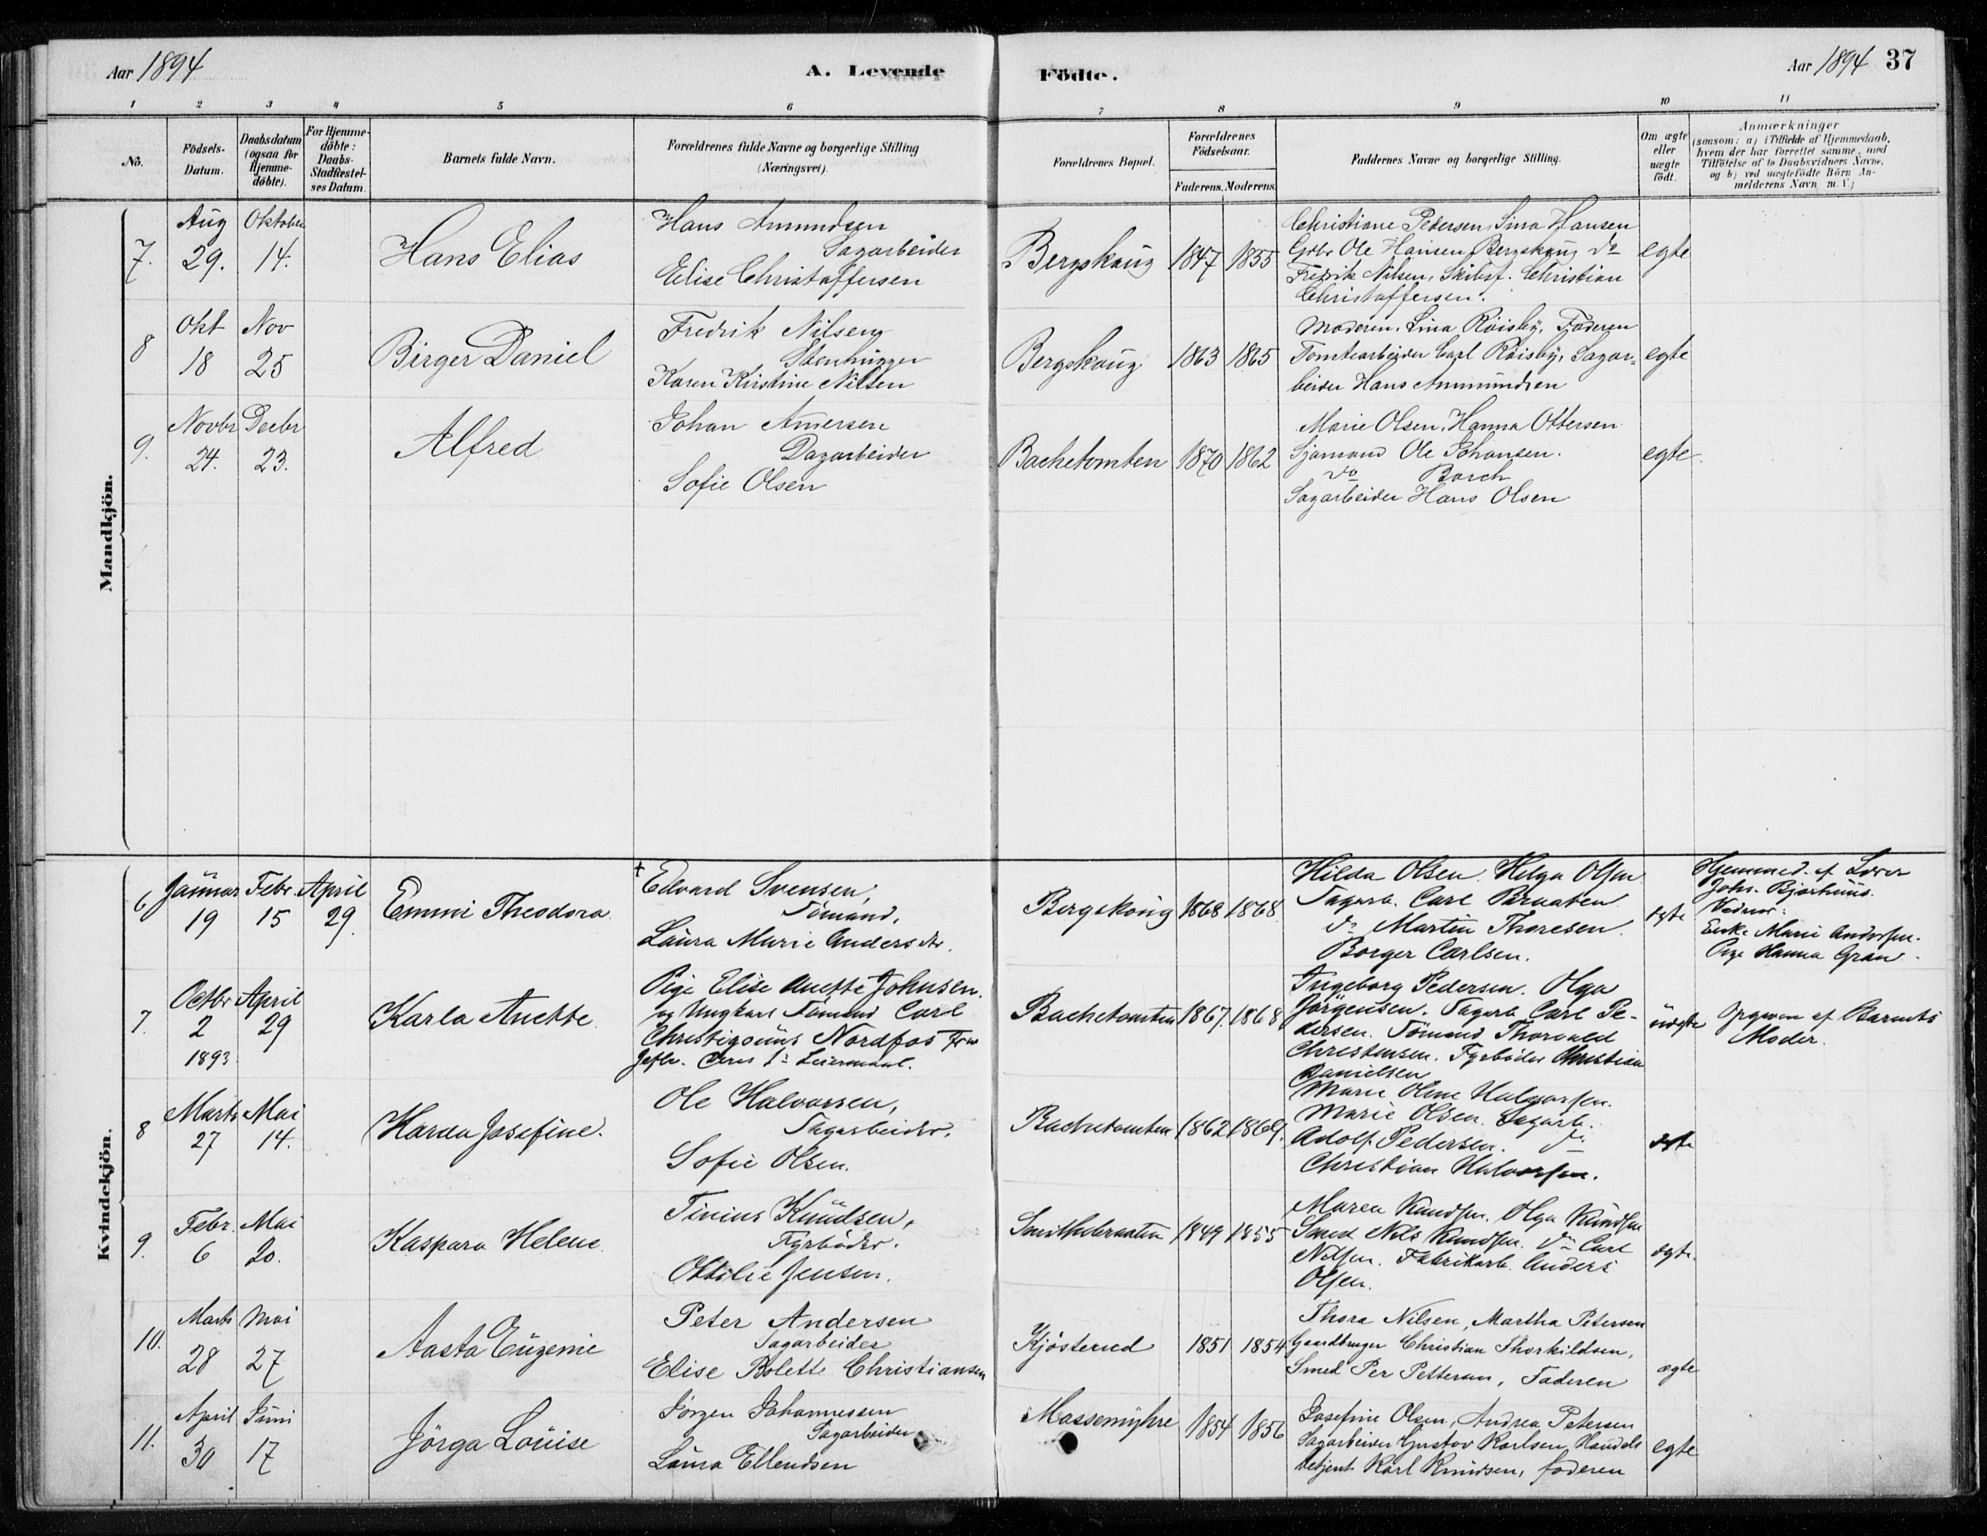 Aar 1894
A. Levende
Födte.
Aar 1894 37
1 2 3 4 5 6 7 8 9 10 11
No.
Födsels-
Datum.
Daabsdatum
(ogsaa for
Hjemme-
döbte).
For Hjemme-
döbte:
Daabs-
Stadfæstel-
ses Datum.
Barnets fulde Navn.
Forældrenes fulde Navne og borgerlige Stilling
(Næringsvei).
Forældrenes Bopæl.
Forældrenes
Födselsaar.
Faderens. Moderens.
Faddernes Navne og borgerlige Stilling.
Om ægte
eller
uægte
födt.
Anmærkninger
(saasom: a) i Tilfælde af Hjemmedaab,
hvem der har forrettet samme, med
Tilföielse af to Daabsvidners Navne,
og b) ved uægtefödte Börn An-
melderens Navn m. V.)
Mandkjön.
7.
Aug
29.
Oktober
14.
Hans Elias
Hans Amundsen
Sagarbeider
Elise Christoffersen
Bergskaug
1847 1855
Christiane Pedersen, Sina Hansen
Grbr Ole Hansen Bergskaug do
Fredrik Nilsen, Skibsf. Christian
Christoffersen.
egte
8
Okt
18
Nov
25
Birger Daniel
Fredrik Nilsen
Stenhugger
Karen Kirstine Nilsen
Bergskaug
1863 1865
Moderen, Lina Röisby, Faderen
Tomtearbeider Carl Röisby, Sagar-
beider Hans Ammundsen
egte
9.
Novbr
24.
Decbr
23.
Alfred
Johan Amersen
Dagarbeider
Sofie Olsen
Bachetomten
1870 1862
Marie Olsen, Hanna Ottersen
Sjömand Ole Johansen.
do Borch
Sagarbeider Hans Olsen
egte.
Kvindekjön.
6
Januar
19
Febr.
15
April
29.
Emmi Theodora
Edvard Svensen,
Tömand,
Laura Marie Andersdtr.
Bergskoug
1868 1868
Hilda Olsen. Helga Olsen
Sagarb. Carl Braaten
do Martin Thoresen.
Borger Carlsen.
egte
Hjemmed. af Lærer
Johs. Bjorhuus.
Vidner:
Enke Marie Andersen.
Pige Hanna Gran.
7.
Octbr
2
1893
April
29
Karla Anette
Pige Elise Anette Johnsen.
og Ungkarl Tömand Carl
Christigouns Nordfos
Jefte. Deres 1ste Leiermaal.
Bachetomten
1867. 1868
Ingeborg Pedersen. Olga
Jörgensen. Sagarb. Carl Pe-
dersen. Tömand Thorvald
Christensen. Fyrböder Christian
Danielsen
uægte
Opgiven af Barnets
Moder.
8
Marts
27
Mai
14.
Harda Josefine.
Ole Halvorsen,
Sagarbeider.
Sofie Olsen.
Bachetomten
1862 1869.
Marie Oline Halvorsen.
Marie Olsen. Sagarb.
Adolf Pedersen. do
Christian Halvorsen.
egte
9.
Febr.
6
Mai
20.
Kaspara Helene
Tinius Knudsen,
Fyrböder.
Ottilie Jensen.
Smithebraaten
1849 1855
Maren Knudsen. Olga Knudsen
Smed Nils Knudsen. do Carl
Nilsen. Fabrikarb. Anders
Olsen.
egte.
10.
Marts
28
Mai
27
Aasta Eugenie
Peter Andersen
Sagarbeider
Elise Bolette Christiansen
Kjösterud
1851 1854
Thora Nilsen, Martha Petersen
Gaardbruger Christian Thorkildsen,
Smed Per Pettersen, Faderen
ægte
11.
April
30
Juni
17
Jörga Louise
Jörgen Johannessen
Sagarbeider
Laura Ellendsen
Massemyhre
1854 1856
Josefine Olsen, Andrea Petersen
Sagarbeider Gustav Karlsen, Handels
betjent Karl Knudsen, faderen
egte